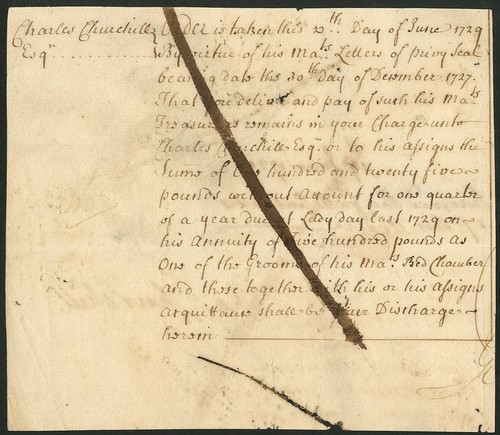 Charles Churchill } Order is taken this 20th. Day of June 1729
Esqr. ............ By virtue of his Mats. Letters of privy Seal
bearing date the 30th day of December 1727.
That you deliver and pay of such his Mats
Treasure as remains in your Charge unto
Charles Churchill Esqr. or to his assigns the
Sume of One hundred and twenty five
pounds without Account for one quarter
of a year due at Lady day last 1729 on
his Annuity of Five hundred pounds as
One of the Grooms of his Mats. Bed Chamber
And these together with his or his assigns
acquittance shall be your Discharge
herein